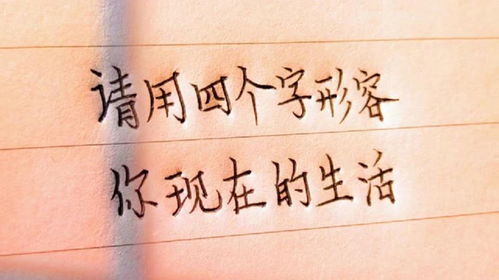 请用四个字形容
你现在的生活